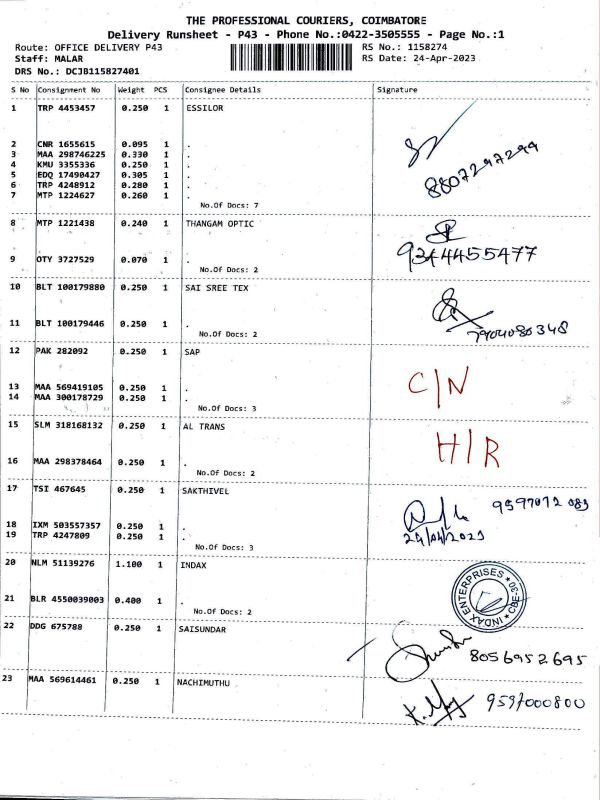 THE PROFESSIONAL COURIERS, COIMBATORE
Delivery Runsheet - P43 - Phone No.:0422-3505555 - Page No.:1
Route: OFFICE DELIVERY P43 RS No.: 1158274
Staff: MALAR RS Date: 24-Apr-2023
DRS No.: DCJB115827401
S No Consignment No Weight PCS Consignee Details Signature
1 TRP 4453457 0.250 1 ESSILOR
2 CNR 1655615 0.095 1 .
3 MAA 298746225 0.330 1 .
4 KMU 3355336 0.250 1 .
5 EDQ 17490427 0.305 1 .
6 TRP 4248912 0.280 1 .
7 MTP 1224627 0.260 1 .
8807297299
No.Of Docs: 7
8 MTP 1221438 0.240 1 THANGAM OPTIC
9344455477
9 OTY 3727529 0.070 1 .
No.Of Docs: 2
10 BLT 100179880 0.250 1 SAI SREE TEX
11 BLT 100179446 0.250 1 .
7904080348
No.Of Docs: 2
12 PAK 282092 0.250 1 SAP
C/N
13 MAA 569419105 0.250 1 .
14 MAA 300178729 0.250 1 .
No.Of Docs: 3
15 SLM 318168132 0.250 1 AL TRANS
H/R
16 MAA 298378464 0.250 1 .
No.Of Docs: 2
17 TSI 467645 0.250 1 SAKTHIVEL
9597072 089
18 IXM 503557357 0.250 1 .
19 TRP 4247809 0.250 1 .
24/04/2023
No.Of Docs: 3
20 NLM 51139276 1.100 1 INDAX
INDAX ENTERPRISES
21 BLR 4550039003 0.400 1 .
No.Of Docs: 2
22 DDG 675788 0.250 1 SAISUNDAR
8056952695
23 MAA 569614461 0.250 1 NACHIMUTHU
9597000800